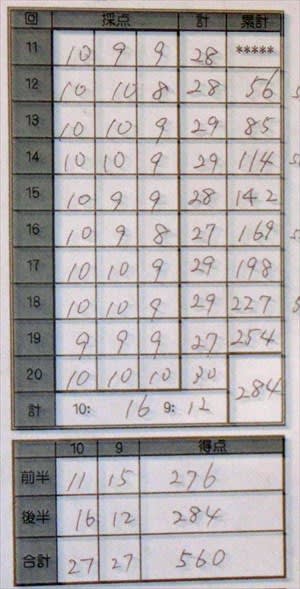 回 採点 計 累計
11 10 9 9 28 *****
12 10 10 8 28 56
13 10 10 9 29 85
14 10 10 9 29 114
15 10 9 9 28 142
16 10 9 8 27 169
17 10 10 9 29 198
18 10 10 9 29 227
19 9 9 9 27 254
20 10 10 10 30 284
計 10: 16 9: 12
10 9 得点
前半 11 15 276
後半 16 12 284
合計 27 27 560